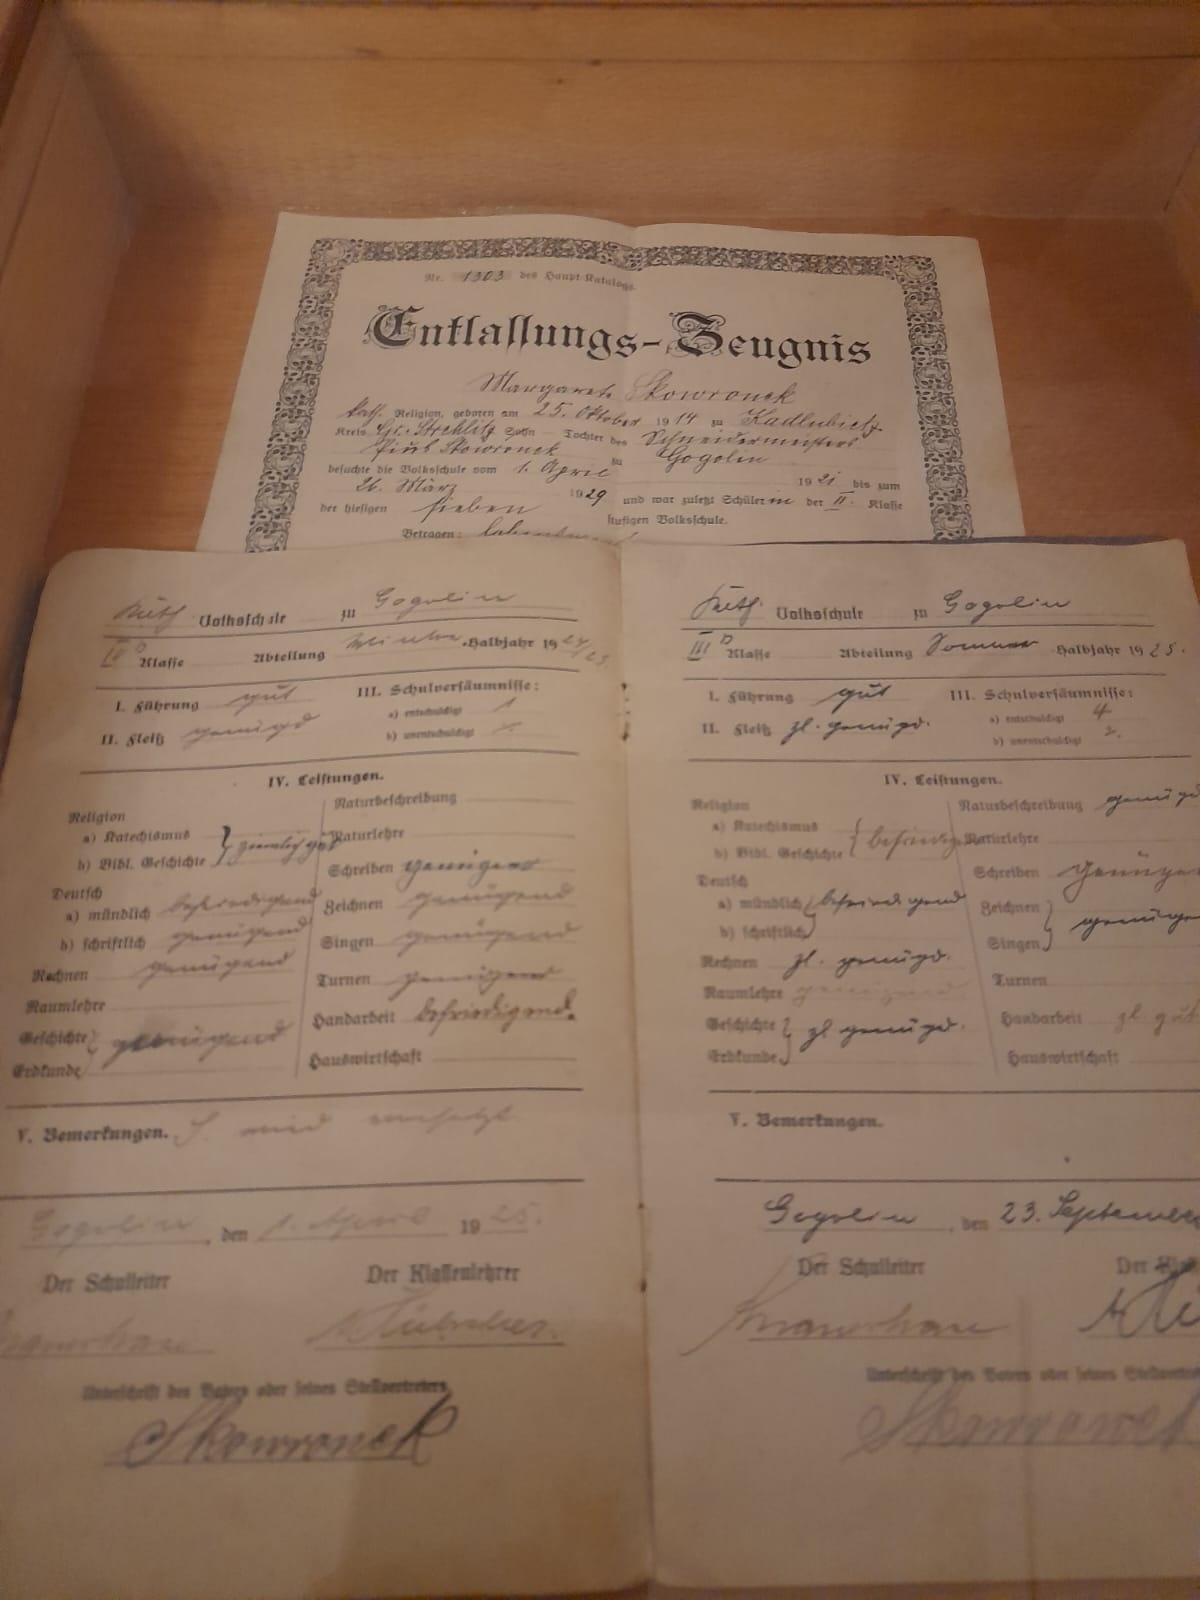 Nr. 1303 des Haupt-Katalogs.
Entlassungs-Zeugnis
Margarete Skowronek
kath. Religion, geboren am 25. Oktober 1914 zu Kadlubietz
Kreis Gr.-Strehlitz Sohn – Tochter des Schneidermeisters
Pius Skowronek zu Gogolin
besuchte die Volksschule vom 1. April 1921 bis zum
26. März 1929 und war zuletzt Schülerin der II. Klasse
der hiesigen sieben stufigen Volksschule.
Betragen:
Kath. Volksschule zu Gogolin
Klasse Abteilung Winter Halbjahr 1924/25.
I. Führung gut
II. Fleiß genügd
III. Schulversäumnisse:
a) entschuldigt 1
b) unentschuldigt
IV. Leistungen.
Religion
a) Katechismus
b) Bibl. Geschichte } ziemlich gut
Deutsch
a) mündlich befriedigend
b) schriftlich genügend
Rechnen genügend
Raumlehre
Geschichte
Erdkunde } genügend
Naturbeschreibung
Naturlehre
Schreiben genügend
Zeichnen genügend
Singen genügend
Turnen genügend
Handarbeit befriedigend.
Hauswirtschaft
V. Bemerkungen. S. wird versetzt
Gogolin, den 1. April 1925.
Der Schulleiter
Der Klassenlehrer
Unterschrift des Vaters oder seines Stellvertreters
Skowronek
Kath. Volksschule zu Gogolin
III D Klasse Abteilung Sommer Halbjahr 1925.
I. Führung gut
II. Fleiß zl. genügd.
III. Schulversäumnisse:
a) entschuldigt 4
b) unentschuldigt 2.
IV. Leistungen.
Religion
a) Katechismus
b) Bibl. Geschichte {
Deutsch
a) mündlich
b) schriftlich } befriedigend
Rechnen zl. genügd.
Raumlehre genügend
Geschichte
Erdkunde } zl genügd.
Naturbeschreibung
Naturlehre
Schreiben
Zeichnen
Singen }
Turnen
Handarbeit zl gut
Hauswirtschaft
V. Bemerkungen.
Gogolin, den 23. September
Der Schulleiter
Der
Unterschrift des Vaters oder seines
Skowronek